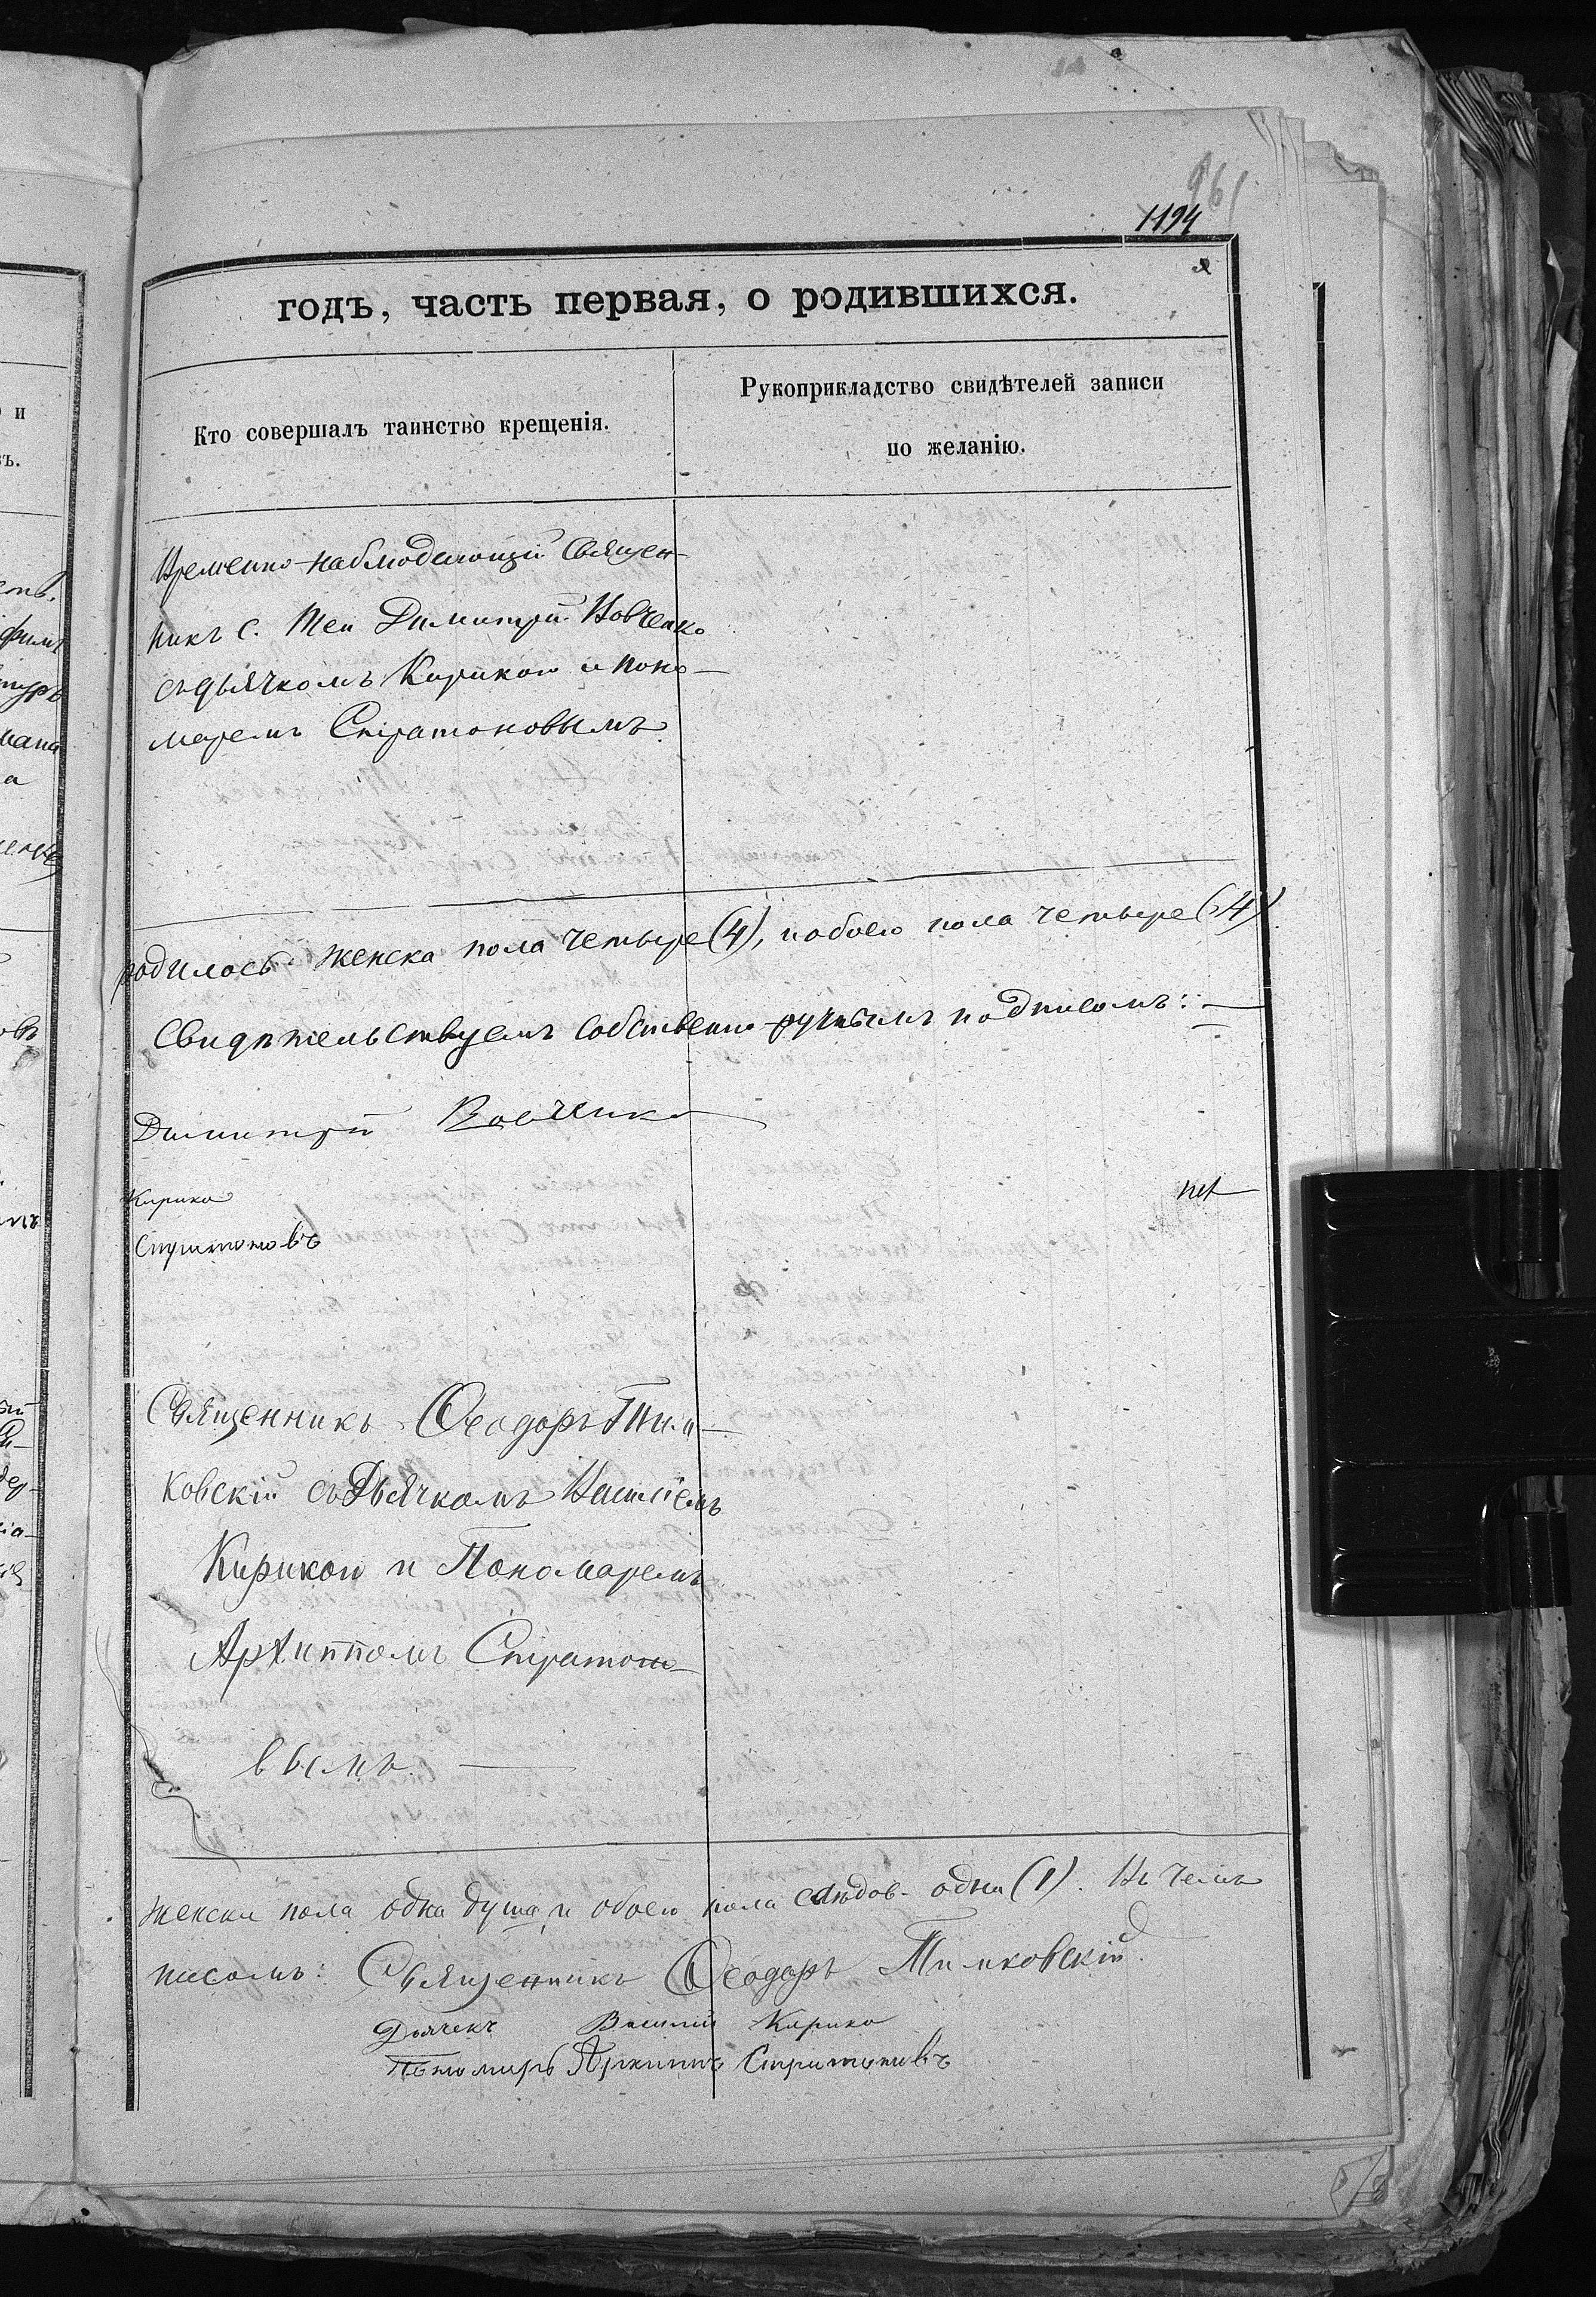 961
1194
годъ, часть первая, о родившихся.
и
Кто совершалъ таинство крещенія.
Рукоприкладство свидѣтелей записи
по желанію.
Временно-наблюдающій Священ-
никъ с. Теи Димитрій Вовченко
съ дьячкомъ Кирикою и поно-
маремъ Стратоновымъ
родилось женска пола четыре (4), и обоего пола четыре (4)
Свидѣтельствуемъ собственно-ручнымъ подписомъ:
Димитрій Вовченко
Кирика
Стратоновъ
Священникъ Ѳеодоръ Тим-
ковскій съ Дьячкомъ Василіемъ
Кирикою и Пономаремъ
Архиппомъ Стратоно-
вымъ
женска пола одна душа, и обоего пола слѣдов. одна (1). Въ чемъ
писомъ: Священникъ Ѳеодоръ Тимковскій
Дьячекъ Василій Кирика
Пономарь Архиппъ Стратоновъ